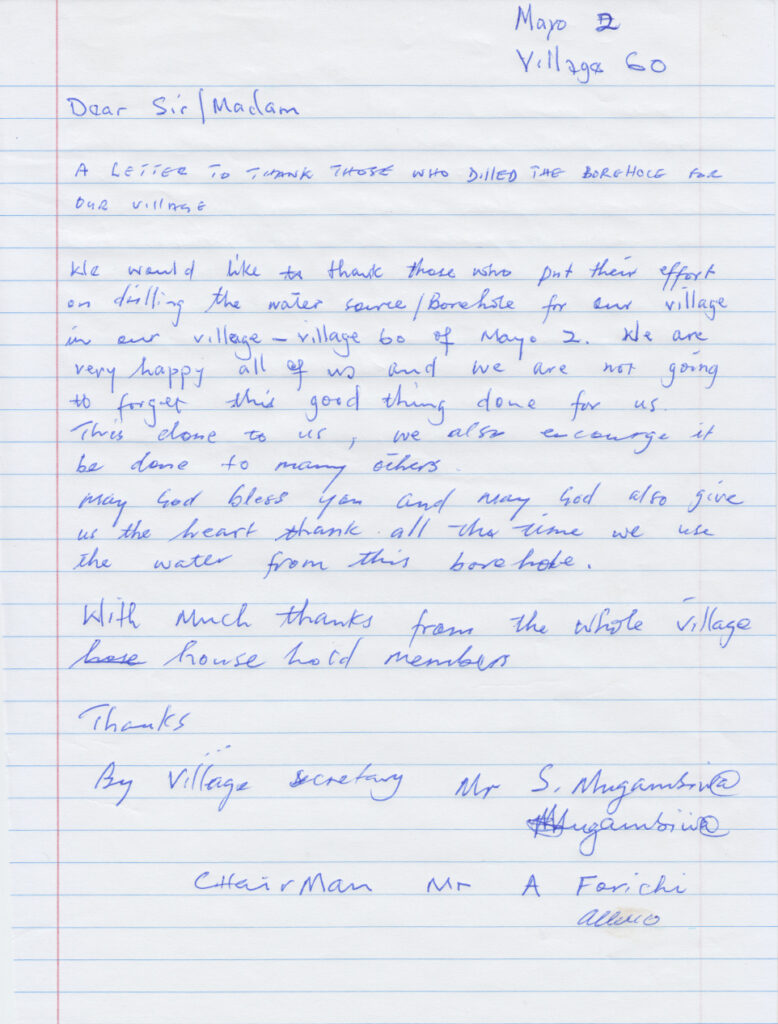 Mayo 2
Village 60
Dear Sir/Madam
A LETTER TO THANK THOSE WHO DILLED THE BOREHOLE FOR
OUR VILLAGE
We would like to thank those who put their effort
on drilling the water source/Borehole for our village
in our village - village 60 of Mayo 2. We are
very happy all of us and we are not going
to forget this good thing done for us.
This done to us, we also encourge it
be done to many others.
May God bless you and may God also give
us the heart thank all the time we use
the water from this borehole.
With Much thanks from the whole village
house hold members
Thanks
By Village secretary Mr S.
CHairMan Mr A Forichi